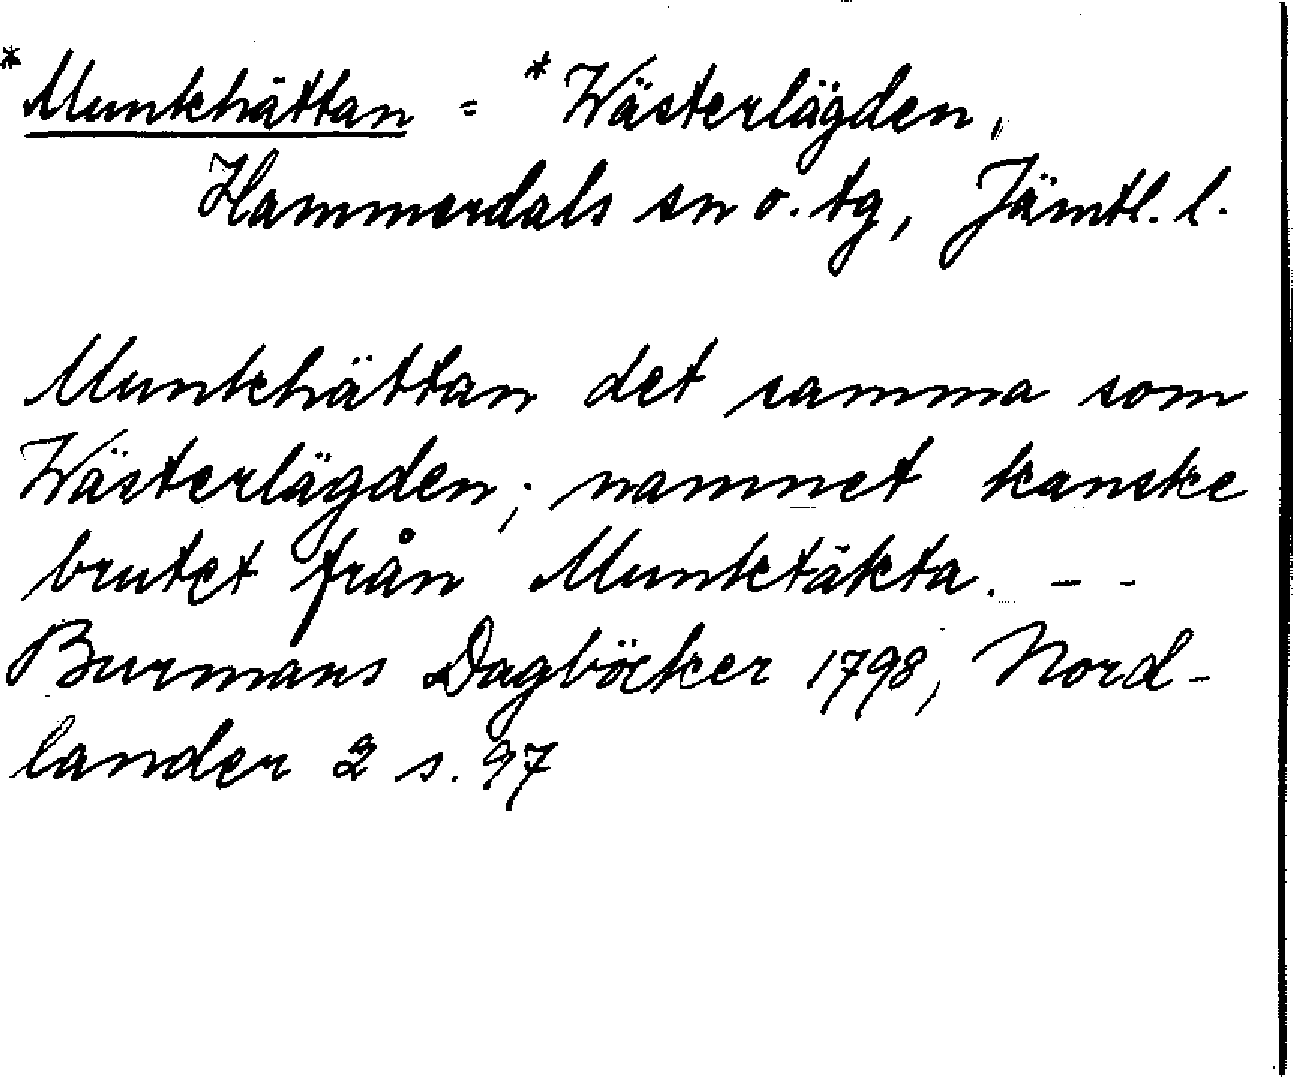 *Munkhättan = *Wästerlägden,
Hammerdals sn o. tg, Jämtl. l.
Munkhättan det samma som
Wästerlägden; namnet kanske
brutet från Munktäkta. - -
Burmans Dagböcker 1798, Nord-
lander 2 s. 97